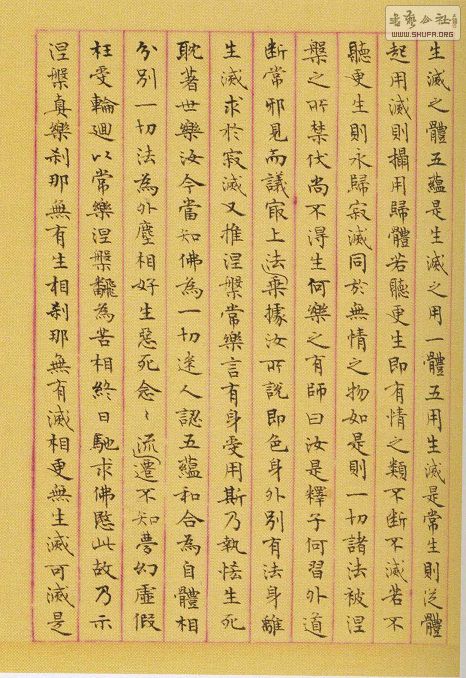 書法公社
WWW.SHUFA.ORG
生滅之體五蘊是生滅之用一體五用生滅是常生則從體
起用滅則攝用歸體若聽更生即有情之類不斷不滅若不
聽更生則永歸寂滅同於無情之物如是則一切諸法被涅
槃之所禁伏尚不得生何樂之有師曰汝是釋子何習外道
斷常邪見而議最上法乘據汝所說即色身外別有法身離
生滅求於寂滅又推涅槃常樂言有身受用斯乃執恡生死
耽著世樂汝今當知佛為一切迷人認五蘊和合為自體相
分別一切法為外塵相好生惡死念〻流遷不知夢幻虛假
枉受輪迴以常樂涅槃飜為苦相終日馳求佛愍此故乃示
涅槃真樂剎那無有生相剎那無有滅相更無生滅可滅是